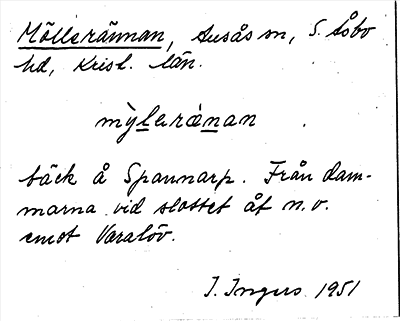 Mölleränнan, Ausås sn, S. Åsbo
hd, Krist. län.
mỳlerànan
bäck å Spannarp. Från dam-
marna vid slottet åt n.v.
emot Varalöv.
I. Ingers 1951